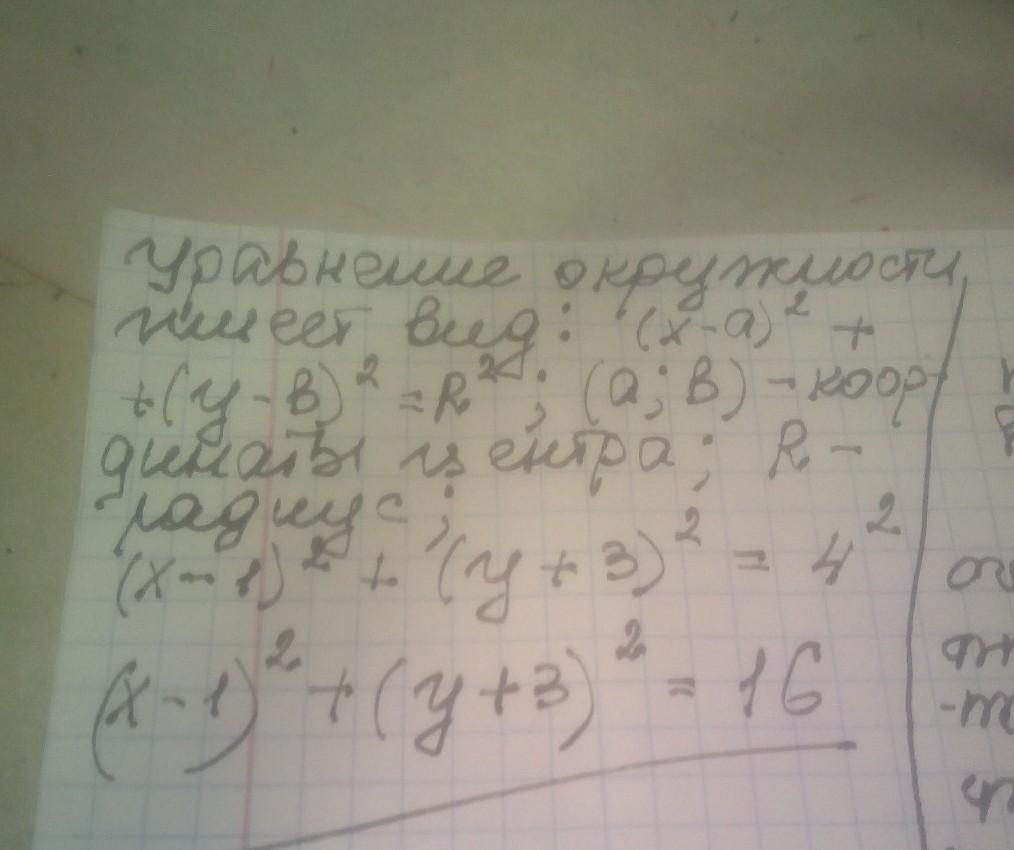 Уравнение окружности
имеет вид: (x-a)² +
+(y-в)² =R²; (a; в) - коор-
динаты центра; R -
радиус;
(x-1)² + (y+3)² = 4²
(x-1)² + (y+3)² = 16